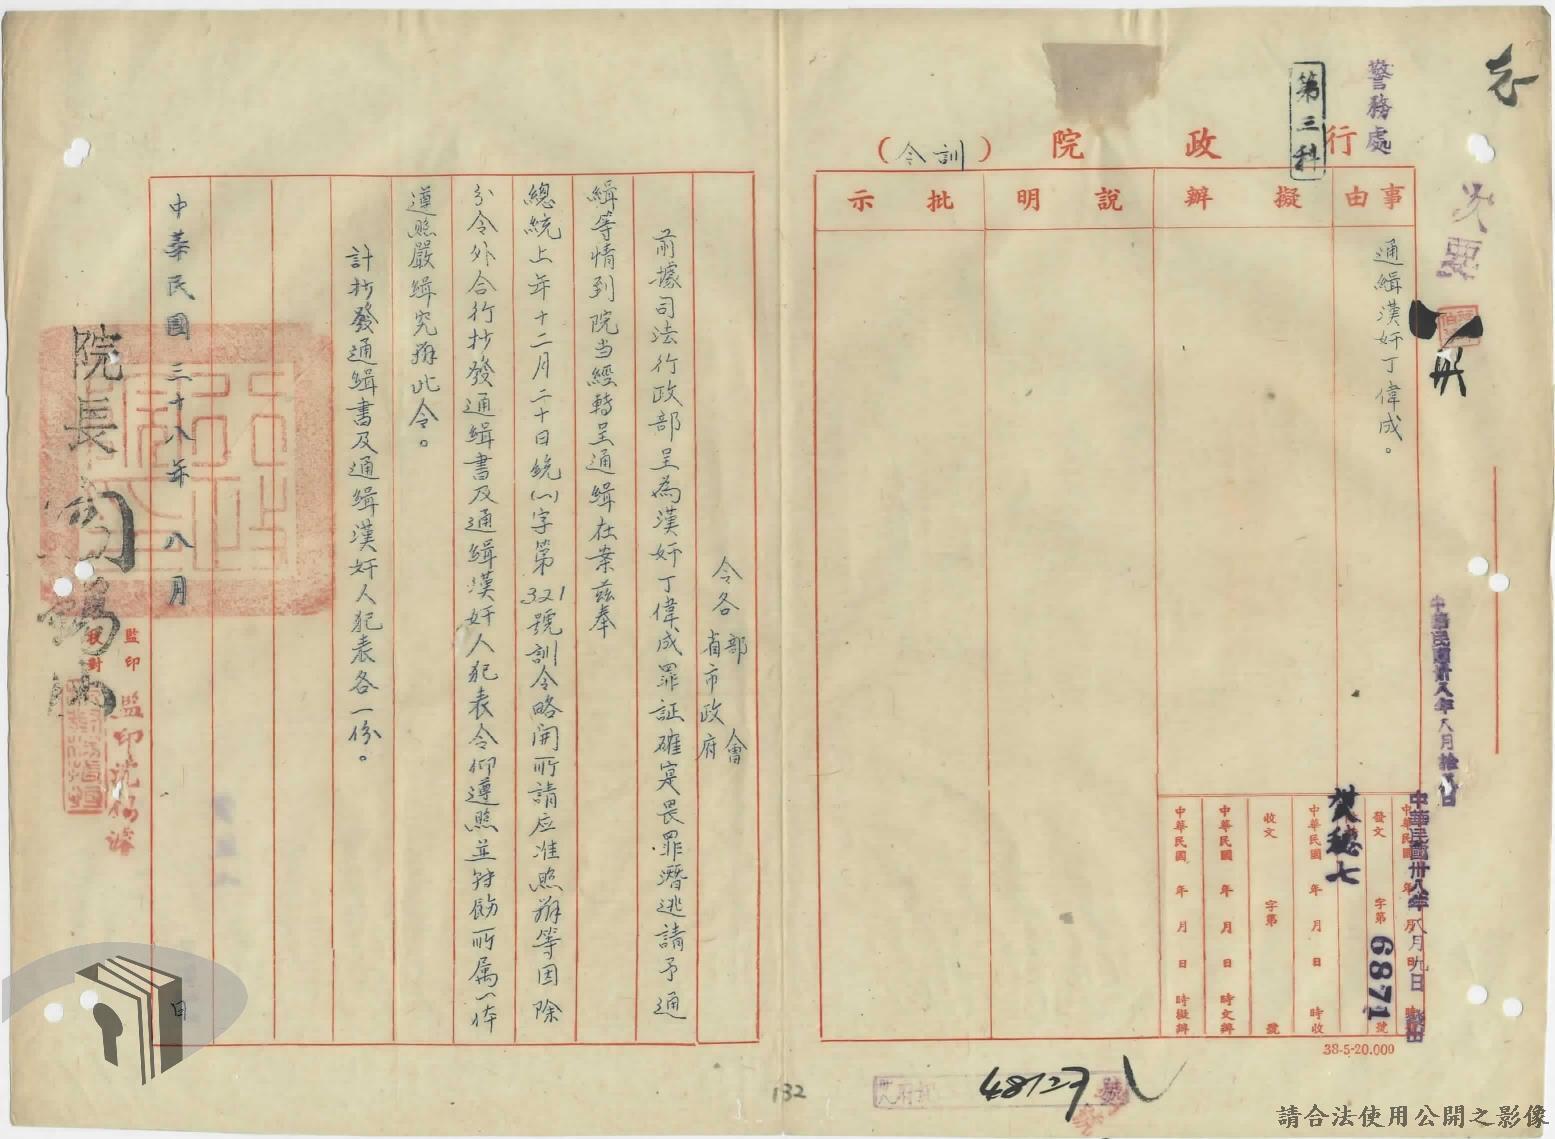 警務處
第三科
行政院（訓令）
事由
擬辦
說明
批示
通緝漢奸丁偉成。
次要
中華民國卅八年八月九日
發文 字第6871號
中華民國 年 月 日 時收
收文 字第 號
中華民國 年 月 日 時交辦
中華民國 年 月 日 時擬辦
38-5-20.000
令各部會省市政府
前據司法行政部呈為漢奸丁偉成罪証確寔畏罪潛逃請予通
緝等情到院当經轉呈通緝在案茲奉
總統上年十二月二十日統(一)字第321號訓令略開所請应准照辦等因除
分令外合行抄發通緝書及通緝漢奸人犯表令仰遵照並轉飭所属一体
遵照嚴緝究辦此令。
計抄發通緝書及通緝漢奸人犯表各一份。
中華民國三十八年八月 日
院長閻錫山
監印
校對
132
48127
號
請合法使用公開之影像